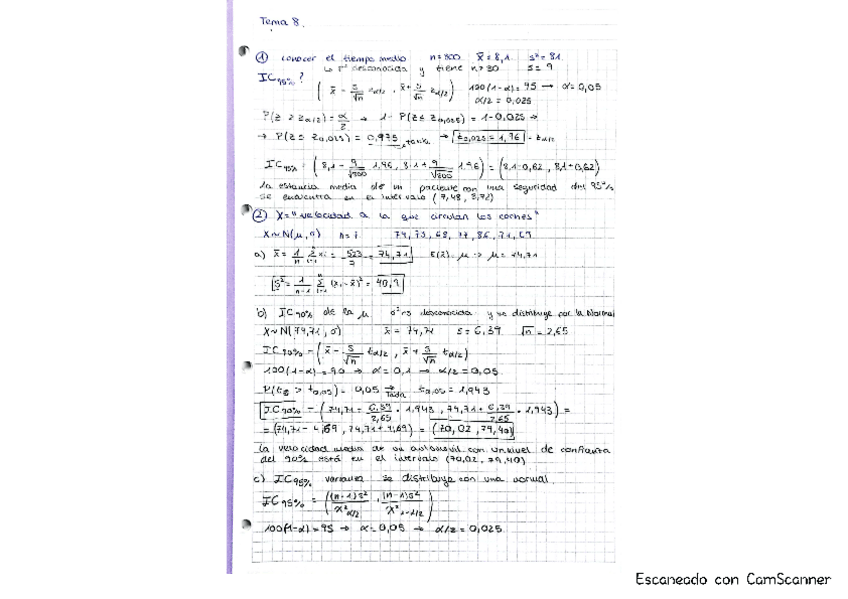 Tema 8.
① Conocer el tiempo medio n=800 x̄=8,1 s²=81
desconocida y tiene n>30 s=9
IC95%?
(x̄ - s/√n zα/2 , x̄ + s/√n zα/2) 100(1-α)=95 → α=0,05
α/2 = 0,025
P(z ≥ zα/2) = α/2 → 1 - P(z ≤ z0,025) = 1-0,025 →
→ P(z ≤ z0,025) = 0,975 tabla → z0,025 = 1,96 = zα/2
IC95% = (8,1 - 9/√800 1,96 , 8,1 + 9/√800 1,96) = (8,1-0,62 , 8,1+0,62)
la estancia media de un paciente con una seguridad del 95%
se encuentra en el intervalo (7,48 , 8,72)
② X="velocidad a la que circulan los coches"
X~N(μ,σ) n=7 74, 73, 68, 77, 86, 71, 69
a) x̄ = 1/n Σ xi = 523/7 = 74,71 μ → μ = 74,71
S² = 1/n-1 Σ (xi - x̄)² = 40,9
b) IC90% de la μ desconocida y se distribuye por la Normal
X~N(74,71, σ) x̄ = 74,71 s = 6,39 √n = 2,65
IC90% = (x̄ - s/√n tα/2 , x̄ + s/√n tα/2)
100(1-α)=90 → α=0,1 → α/2 = 0,05
P(t6 > t0,05) = 0,05 → Tabla t0,05 = 1,943
IC90% = (74,71 - 6,39/2,65 · 1,943 , 74,71 + 6,39/2,65 · 1,943) =
= (74,71 - 4,69 , 74,71 + 4,69) = (70,02 , 79,40)
la velocidad media de un automóvil con un nivel de confianza
del 90% está en el intervalo (70,02 , 79,40)
c) IC95% varianza se distribuye con una normal
IC95% = ((n-1)s²/χ²α/2 , (n-1)s²/χ²1-α/2)
100(1-α)=95 → α=0,05 → α/2 = 0,025
Escaneado con CamScanner